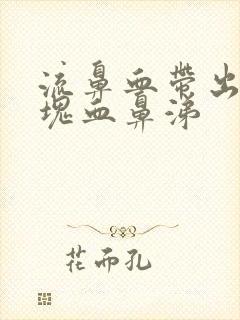 流鼻血带出
块血鼻涕
花而孔